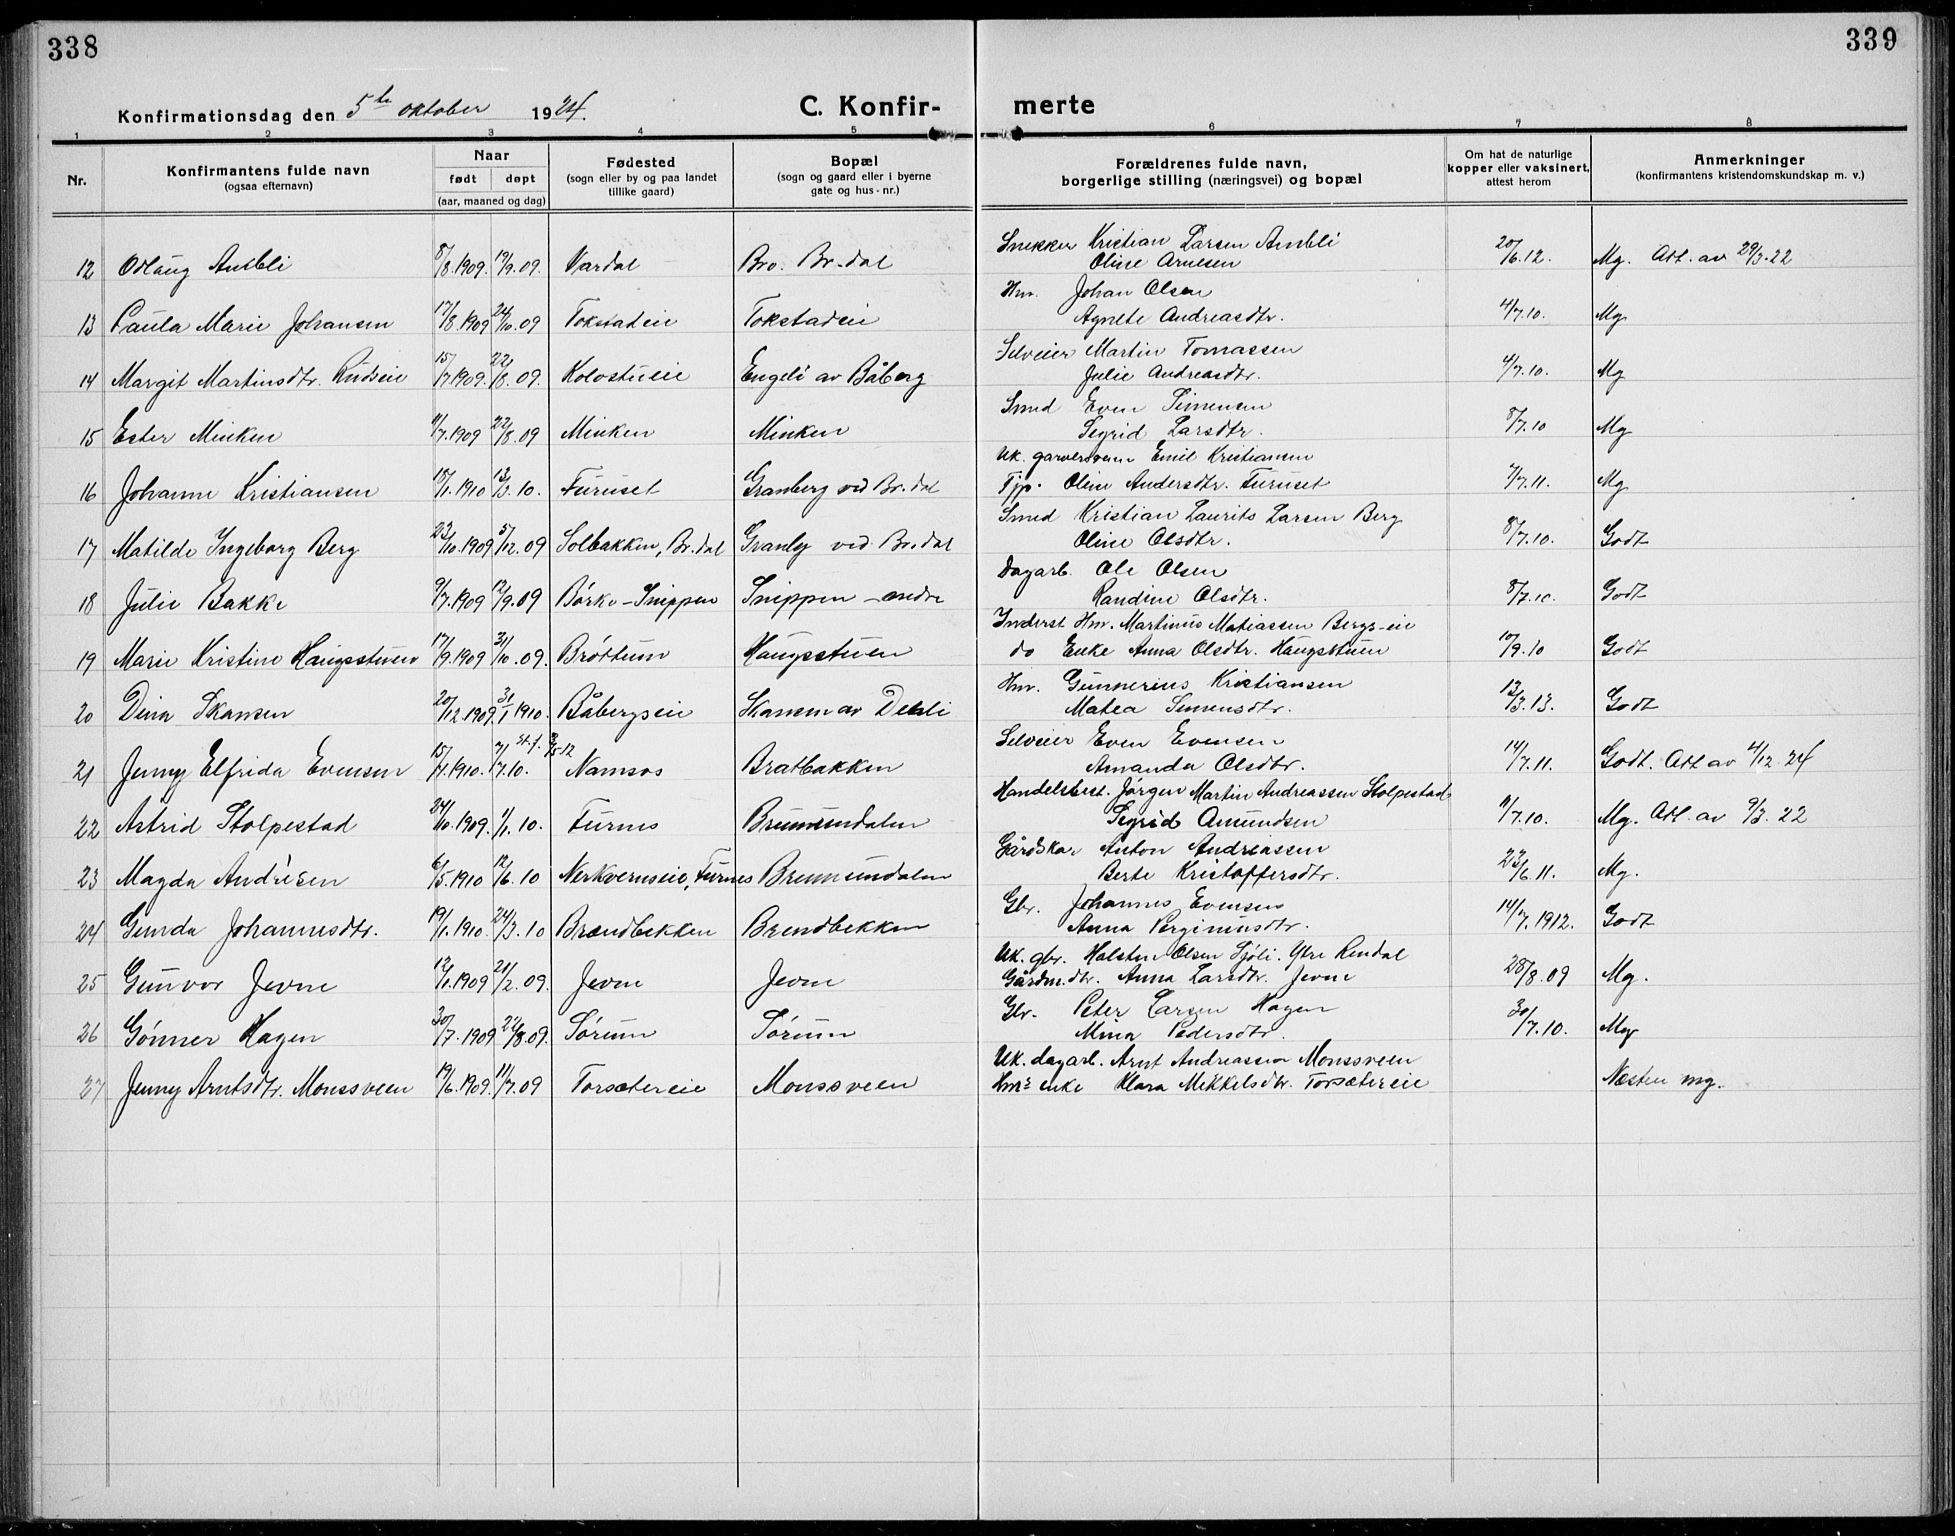 338
339
Konfirmationsdag den 5te oktober 1924.
C. Konfir- merte
1 2 3 4 5 6 7 8
Nr.
Konfirmantens fulde navn
(ogsaa efternavn)
Naar
født døpt
(aar, maaned og dag)
Fødested
(sogn eller by og paa landet
tillike gaard)
Bopæl
(sogn og gaard eller i byerne
gate og hus-nr.)
Forældrenes fulde navn,
borgerlige stilling (næringsvei) og bopæl
Om hat de naturlige
kopper eller vaksinert,
attest herom
Anmerkninger
(konfirmantens kristendomskundskap m. v.)
Snekker Kristian Larsen Ambli
12 Odlaug Ambli 8/8.1909. 19/9.09. Vardal Bro. Br.dal Oline Arnesen 20/6.12. Mg. Att. av 29/3.22
Hm. Johan Olsen
13 Paula Marie Johansen 17/8.1909 24/10.09 Tokstadeie Tokstadeie Agnete Andreasdtr. 4/7.10. Mg
Selveier Martin Tomassen
14 Margit Martinsdtr. Rudseie 15/7.1909. 22/8.09. Kolostueie Engeli av Båberg Julie Andreasdtr. 4/7.10. Mg
Smed Even Simensen
15 Ester Minken 11/7.1909 22/8.09 Minken Minken Sigrid Larsdtr. 8/7.10 Mg
Uk. garversvenn Emil Kristiansen
16 Johanne Kristiansen 18/1.1910 13/3.10. Furuset Granberg ved Br.dal Tjp. Oline Andersdtr. Furuset 7/7.11. Mg
Smed Kristian Laurits Larsen Berg
17 Matilde Ingeborg Berg 23/10.1909 5/12.09 Solbakken, Br.dal Granly ved Br.dal Oline Olsdtr. 8/7.10. Godt
Dagarb. Ole Olsen
18 Julie Bakke 9/7.1909 12/9.09 Børke-Snippen Snippen - nedre Randine Olsdtr. 8/7.10. Godt
Inderst Hm. Martinus Matiassen Bergs-eie
19 Marie Kristine Haugsstuen 17/9.1909 31/10.09. Brøttum Haugsstuen do Enke Anna Olsdtr. Haugsstuen 10/9.10 Godt
Hm. Gunnerius Kristiansen
20 Dina Skansen 20/12.1909. 31/1 1910. Båbergseie Skansen av Dehli Matea Simensdtr. 13/3.13. Godt
Selveier Even Evensen
21 Jenny Elfrida Evensen 15/1.1910. 7.10. Namsos Bratbakken Amanda Olsdtr. 14/7.11. Godt. Att av 4/12.24
Handelsbest. Jørgen Martin Andreassen Stolpestad
22 Astrid Stolpestad 24/10.1909. 1/1.10. Furnes Brumunddalen Sigrid Amundsen 11/7.10. Mg. Att. av 9/3.22
Gårdskar Anton Andreassen
23 Magda Andresen 6/5.1910 12/6.10 Nerkvernseie, Furnes Brumunddalen Berte Kristoffersdtr. 23/6.11. Mg.
Gbr. Johannes Evensen
24 Gunda Johannesdtr. 19/1.1910. 24/3.10 Brændbekken Brendbekken Anna Perginusdtr. 14/7.1912. Godt
Uk. gbr. Halsten Olsen Sjøli. Ytre Rendal
25 Gunvor Jevne 12/1.1909 21/2.09. Jevne Jevne Gårdm.dtr. Anna Larsdtr. Jevne 28/8.09 Mg.
Gbr. Peter Larsen Hagen
26 Gønner Hagen 30/7.1909 22/8.09. Sørum Sørum Mina Pedersdtr. 30/7.10. Mg
Uk. dagarb. Arnt Andreassen Monssveen
27 Jenny Arntsdtr. Monssveen 19/6.1909. 11/7.09 Torsætereie Monssveen Hms enke Klara Mikkelsdtr. Torsætereie Næsten mg.